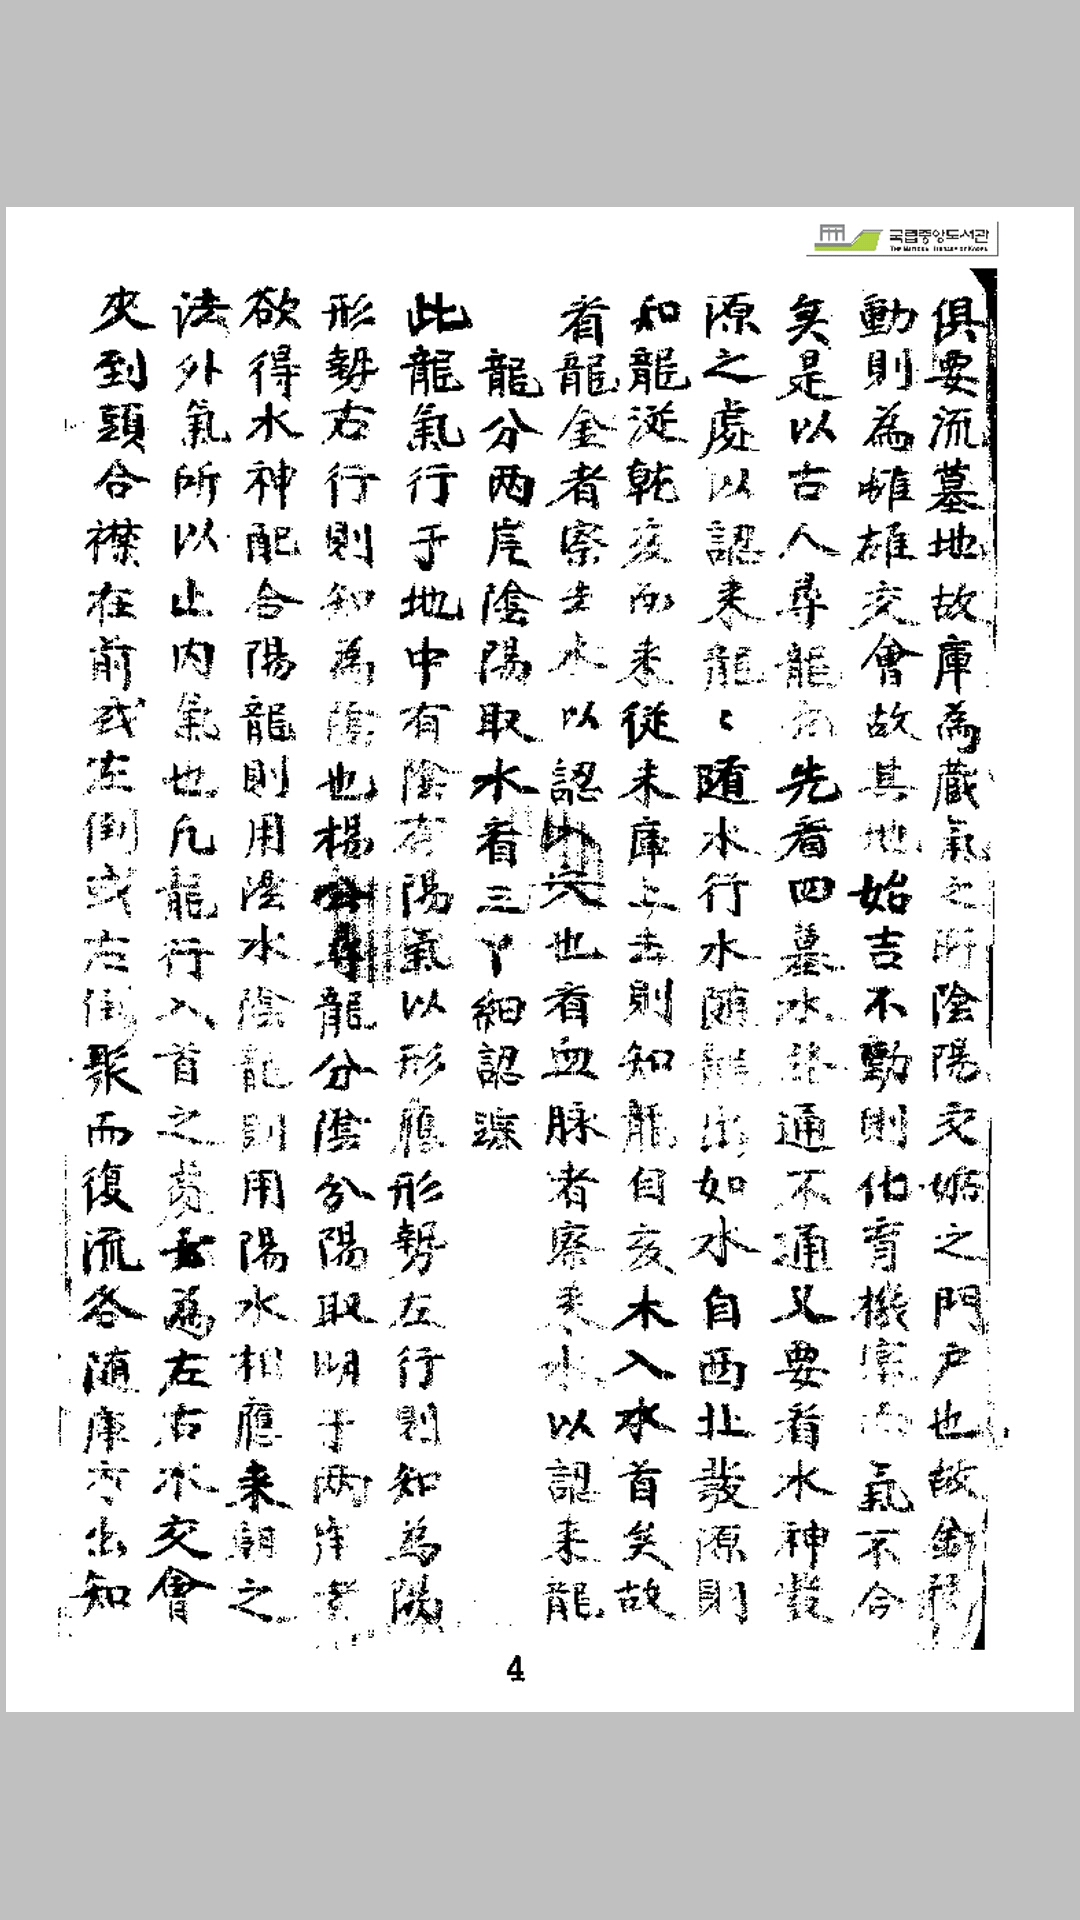 국립중앙도서관
THE NATIONAL LIBRARY OF KOREA
俱要流墓地故庫為蔵氣之所陰陽交姤之門戶也故
動則為雌雄交會故其地始吉不動則化育機 氣不合
矣是以古人尋龍 先看四墓水 通不通又要看水神發
源之處以認来龍〻随水行水随龍出如水自西北發源則
知龍従乾亥而来従未庫上去則知龍自亥木入水首矣故
看龍金者察去水以認 也看血脉者察来水以認来龍
龍分兩岸陰陽取水看三丫細認蹤
此龍氣行于地中有陰有陽氣以形應形勢左行則知為陽
形勢右行則知為陰也楊公尋龍分陰分陽取明于兩岸者
欲得水神配合陽龍則用陰水陰龍則用陽水相應来朝之
法外氣所以止内氣也凡龍行入首之 為左右水交會
夾到頭合襟在前或左倒或右倒聚而復流各随庫方出知
4